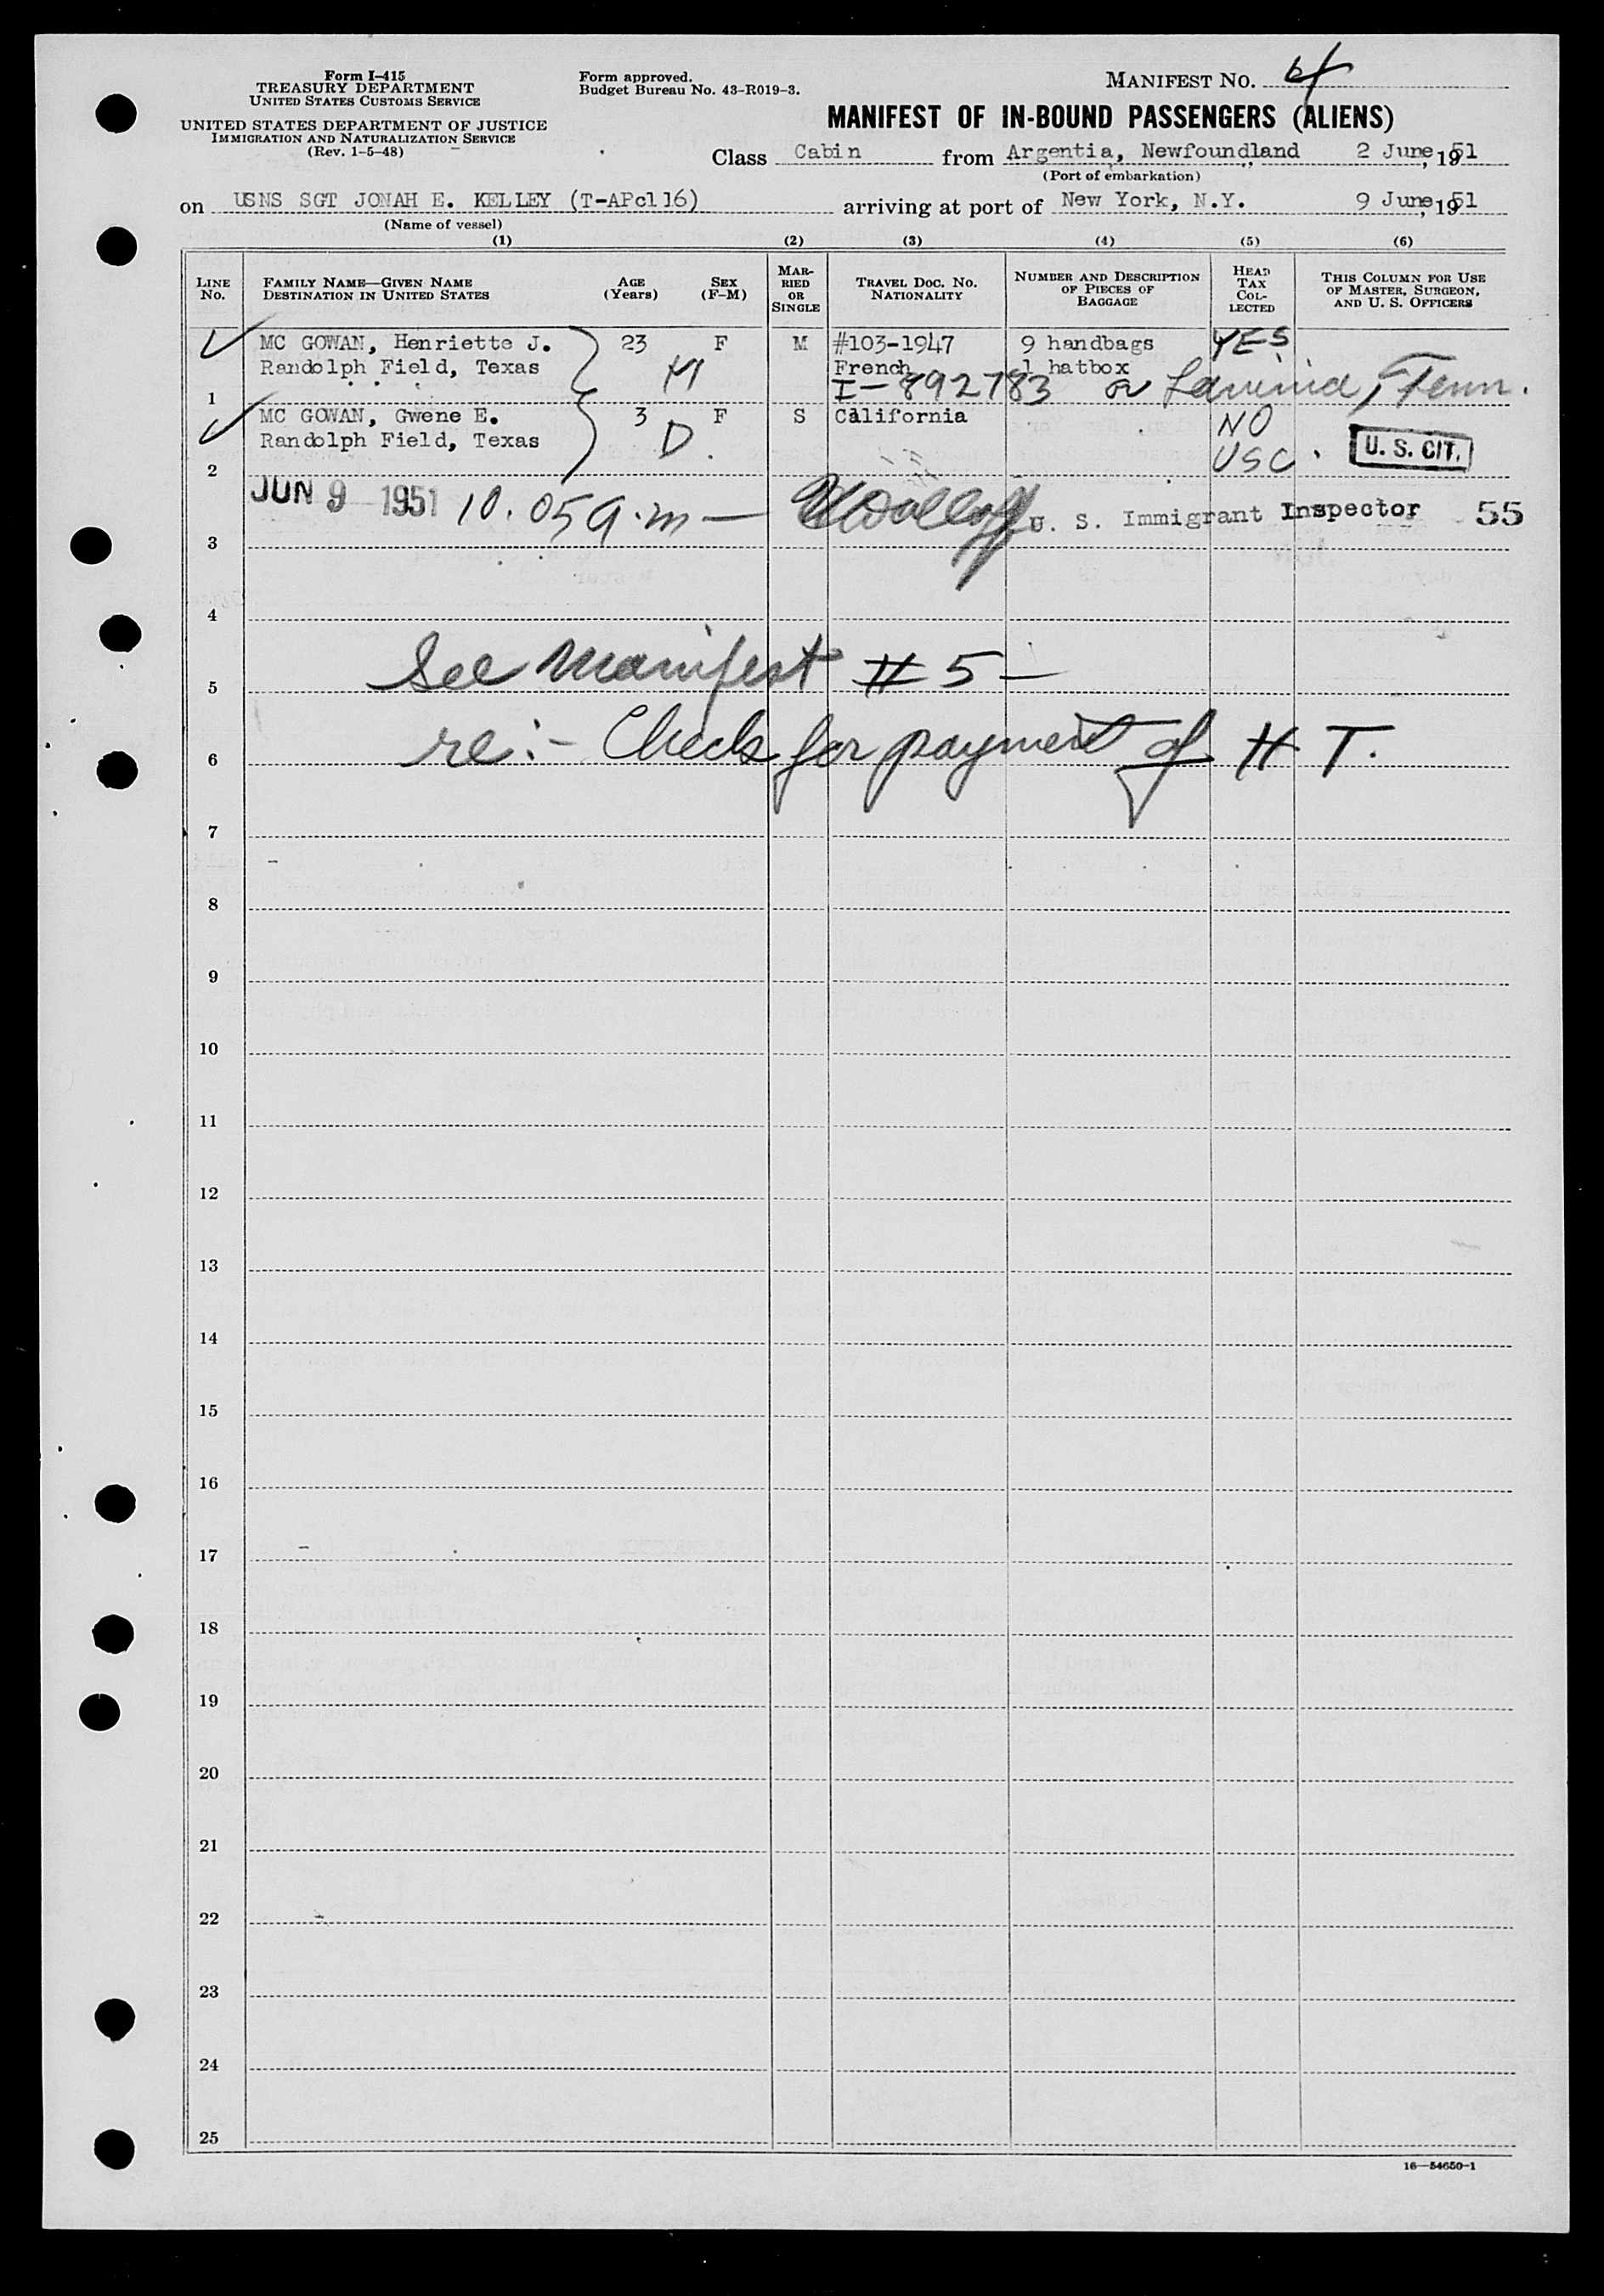 Form I-415
TREASURY DEPARTMENT
UNITED STATES CUSTOMS SERVICE
UNITED STATES DEPARTMENT OF JUSTICE
IMMIGRATION AND NATURALIZATION SERVICE
(Rev. 1-5-48)
Form approved.
Budget Bureau No. 43-R019-3.
MANIFEST NO. 4
MANIFEST OF IN-BOUND PASSENGERS (ALIENS)
Class Cabin from Argentia, Newfoundland 2 June, 1951
(Port of embarkation)
on USNS SGT JONAH E. KELLEY (T-APc116) arriving at port of New York, N.Y. 9 June, 1951
(Name of vessel)
(1) (2) (3) (4) (5) (6)
LINE NO. FAMILY NAME—GIVEN NAME DESTINATION IN UNITED STATES AGE (Years) SEX (F-M) MARRIED OR SINGLE TRAVEL DOC. NO. NATIONALITY NUMBER AND DESCRIPTION OF PIECES OF BAGGAGE HEAD TAX COLLECTED THIS COLUMN FOR USE OF MASTER, SURGEON, AND U. S. OFFICERS
MC GOWAN, Henriette J. 23 F M #103-1947 9 handbags YES
Randolph Field, Texas M French 1 hatbox
1 I-892783 or Lavinia, Tenn.
MC GOWAN, Gwene E. 3 F S California NO
Randolph Field, Texas D USC. U. S. CIT.
2
JUN 9 1951 10.05 a.m — U. S. Immigrant Inspector 55
3
4
5 See Manifest # 5 —
6 re:- Check for payment of H. T.
7
8
9
10
11
12
13
14
15
16
17
18
19
20
21
22
23
24
25
16—54650-1